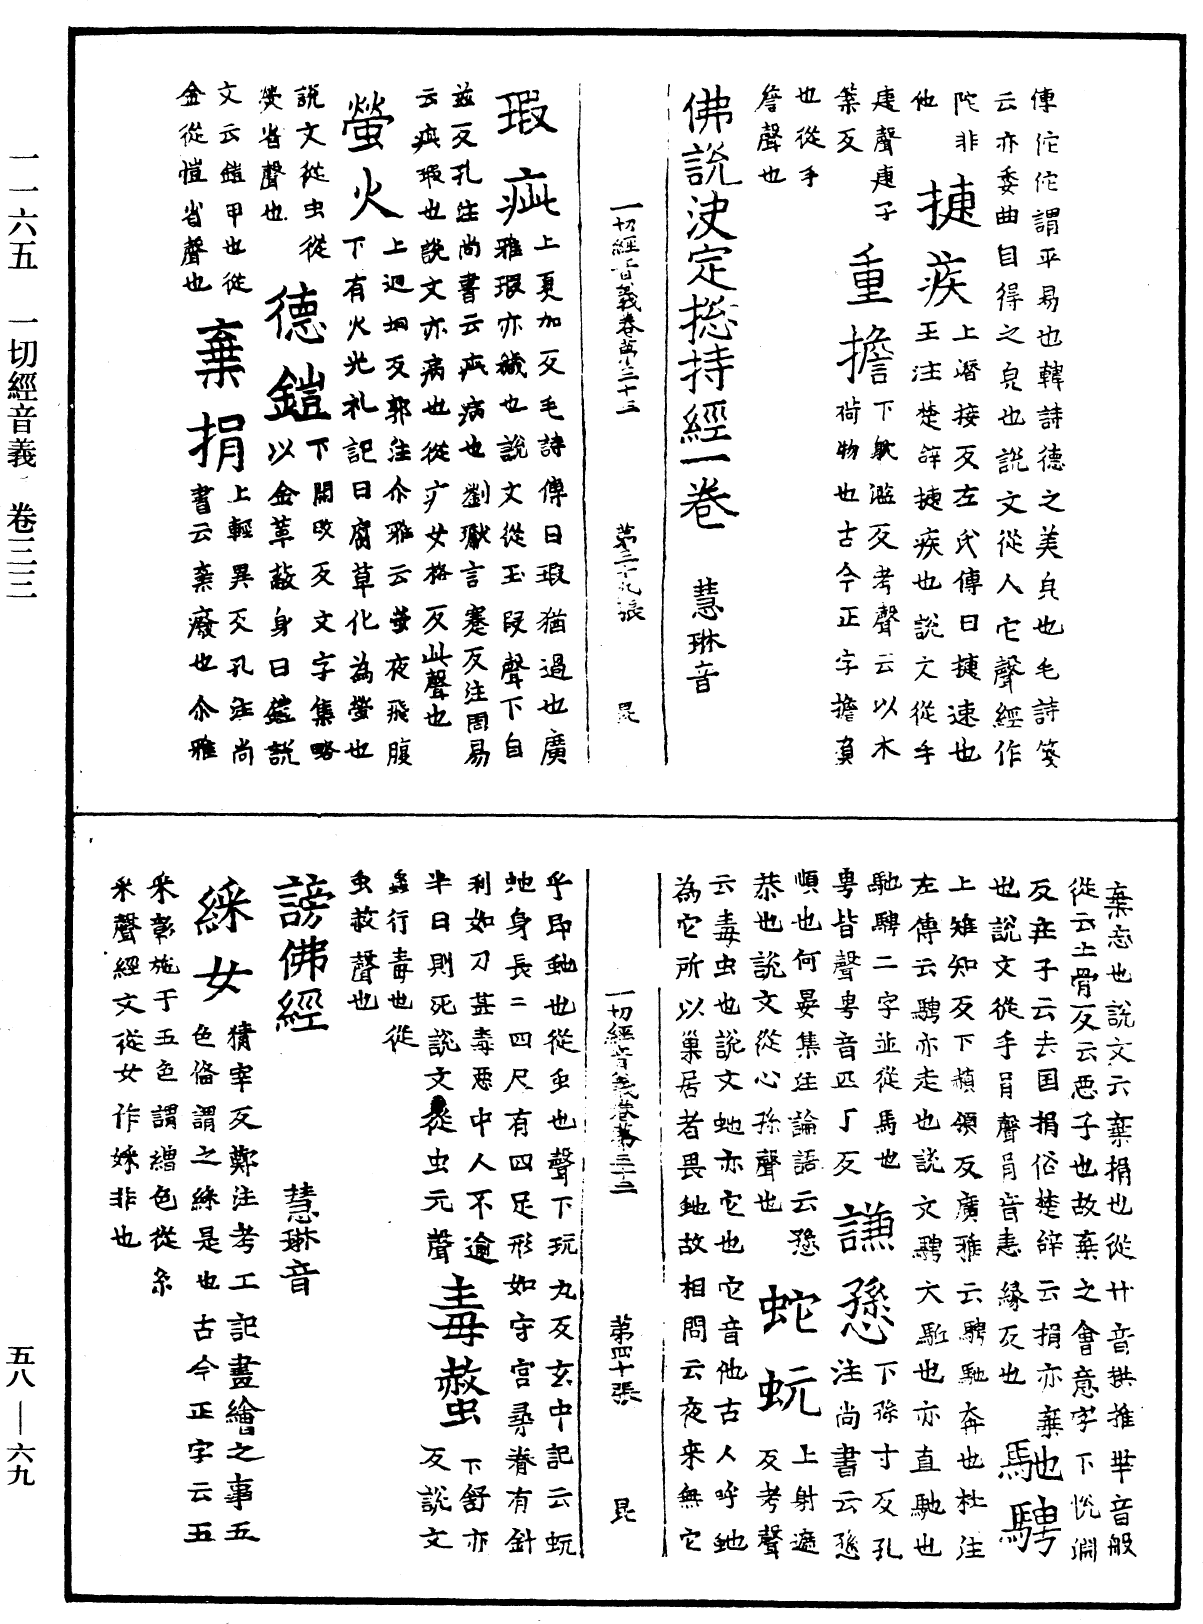 一一六五　一切經音義　卷三三
五八—六九
傳佗佗謂平易也韓詩德之美皃也毛詩箋
云亦委曲自得之皃也說文從人它聲經作
陀非
他
捷疾
上潛接反左氏傳曰捷速也
王注楚辞捷疾也說文從手
疌聲疌子
葉反
重擔
下躭濫反考聲云以木
荷物也古今正字擔負
也從手
詹聲也
佛說決定捴持經一卷　慧琳音
一切經音義卷第三十三　第三十九張　昆
瑕疵
上夏加反毛詩傳曰瑕猶過也廣
雅瑕亦穢也說文從玉叚聲下自
玆反孔注尚書云疵病也劉瓛言蹇反注周易
云疵瑕也說文亦病也從疒女格反此聲也
螢火
上迥坰反郭注尒雅云螢夜飛腹
下有火光礼記曰腐草化為螢也
說文從虫從
熒省聲也
德鎧
下開改反文字集略
以金革蔽身曰鎧說
文云鎧甲也從
金從愷省聲也
棄捐
上輕異反孔注尚
書云棄廢也尒雅
棄忘也說文云棄捐也從廾音拱推𠦒音般
從云土骨反云惡子也故棄之會意字下恱淵
反莊子云去国捐俗楚辞云捐亦棄
也說文從手肙聲肙音恚緣反也
馳騁
上雉知反下頳領反廣雅云騁馳奔也杜注
左傳云騁亦走也說文騁大駈也亦直馳也
馳騁二字並從馬也
甹皆聲甹音匹丁反
謙愻
下孫寸反孔
注尚書云愻
順也何晏集注論語云愻
恭也說文從心孫聲也
蛇蚖
上射遮
反考聲
云毒虫也說文虵亦它也它音他古人呼虵
為它所以巢居者畏虵故相問云夜来無它
乎即虵也從虫也聲下玩丸反玄中記云蚖
虵身長二四尺有四足形如守宮尋脊有針
利如刀甚毒惡中人不逾
半日則死說文從虫元聲
毒螫
下舒亦
反說文
螫行毒也從
虫赦聲也
謗佛經　慧琳音
一切經音義卷第三十三　第四十張　昆
綵女
猜宰反鄭注考工記畫繪之事五
色俻謂之綵是也古今正字云五
采彰施于五色謂繒色從糸
采聲經文從女作婇非也